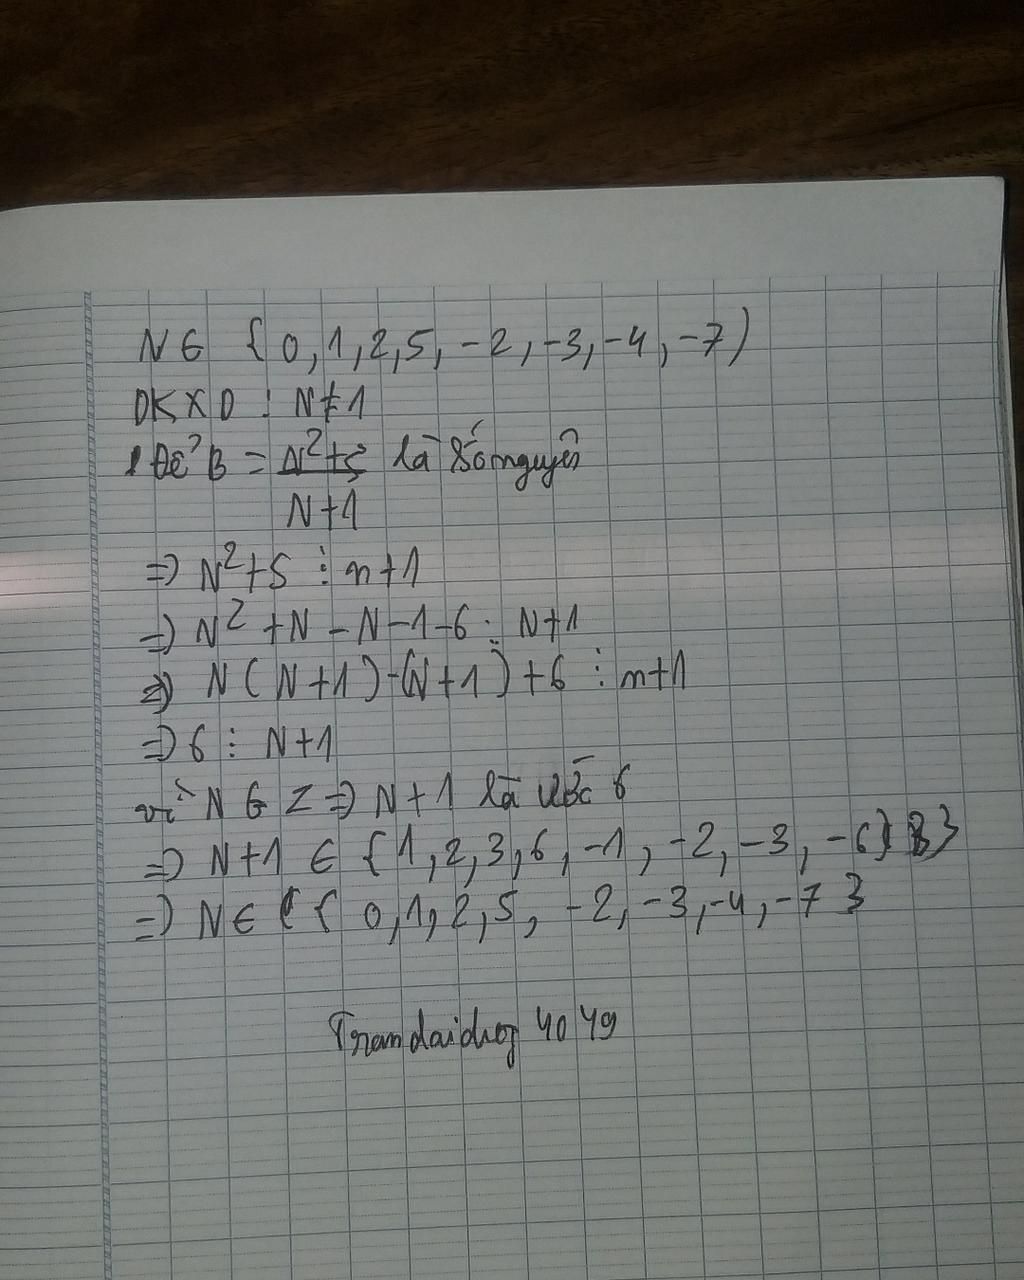 N ∈ { 0, 1, 2, 5, -2, -3, -4, -7 )
DKXD : N ≠ 1
Để B = N²+5 là số nguyên
N+1
=> N²+5 ⋮ n+1
=> N² +N -N-1-6 ⋮ N+1
=> N(N+1)-(N+1)+6 ⋮ n+1
=> 6 ⋮ N+1
vì N ∈ Z => N+1 là ước 6
=> N+1 ∈ {1, 2, 3, 6, -1, -2, -3, -6}
=> N ∈ { 0, 1, 2, 5, -2, -3, -4, -7 }
4049